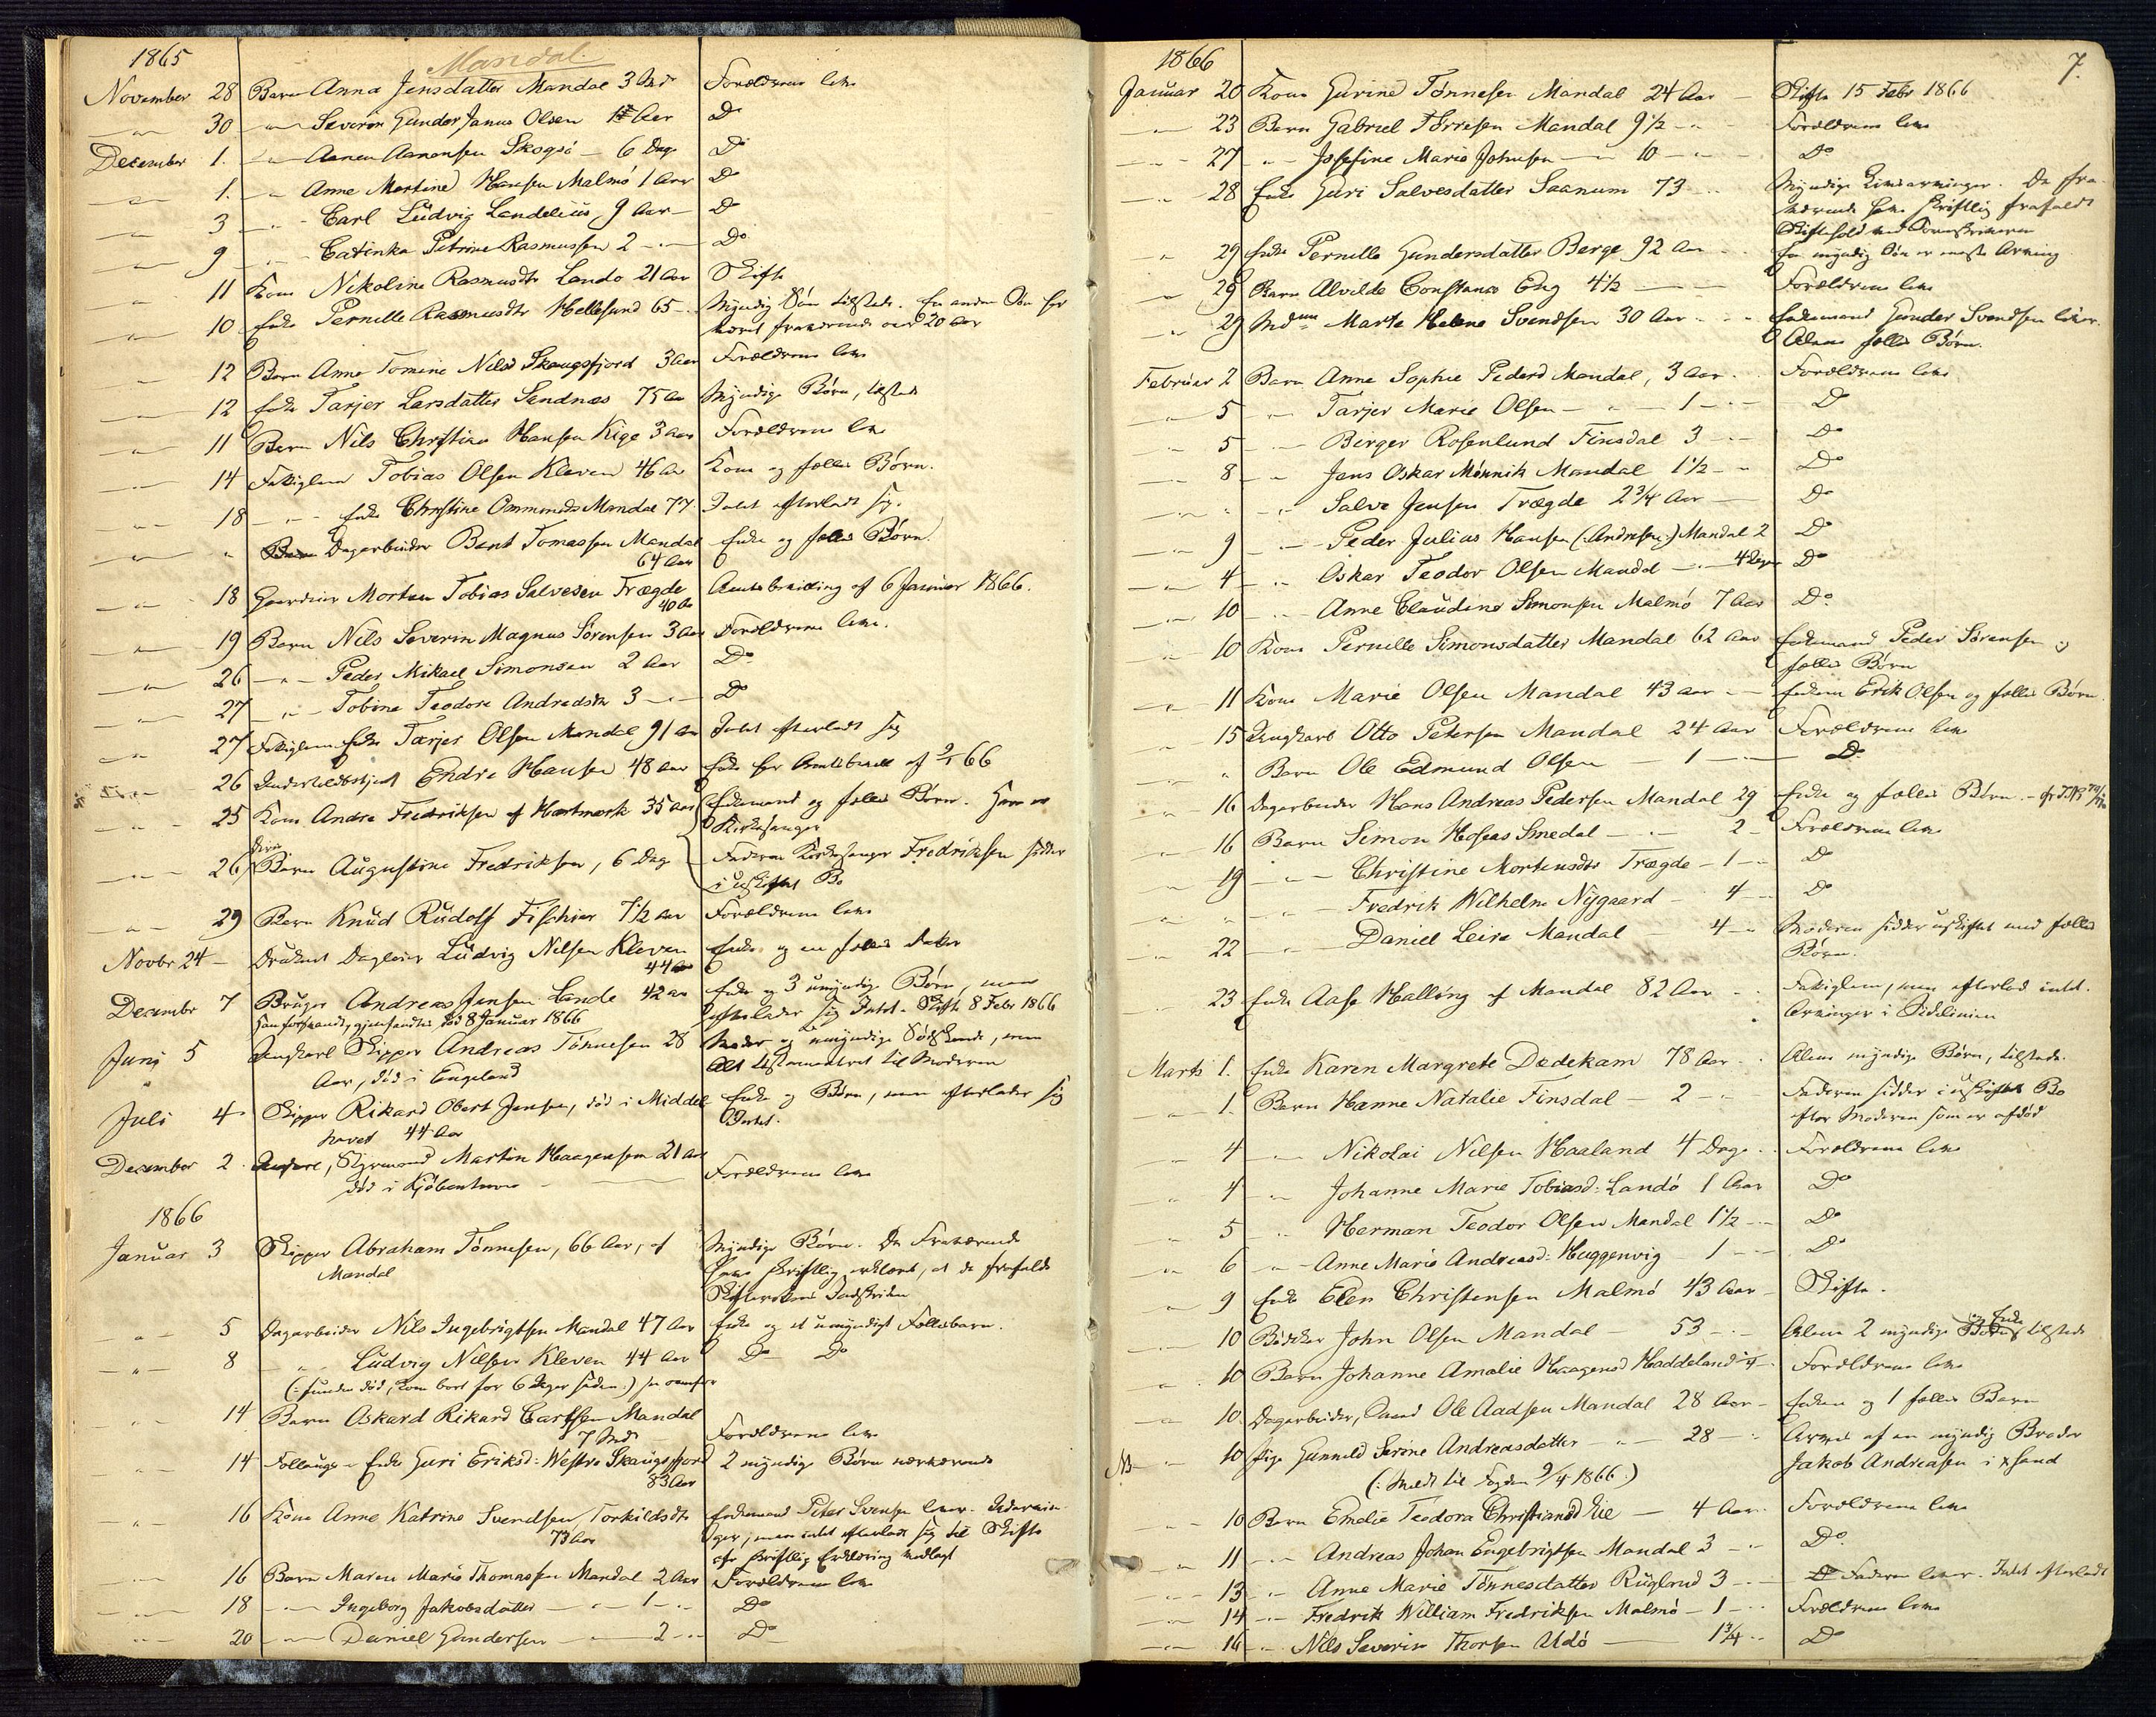 1865
Mandal.
November 28 Barn Anna Jensdatter Mandal 3 Md Forældrene leve
30 Severin Gunder Janus Olsen Aar Do
December 1. Aanen Aanensen Skogsö 6 Dage Do
1. Anne Martine Hansen Malmö 1 Aar Do
3 Carl Ludvig Landelius 9 Aar Do
9 Catinka Petrine Rasmussen 2 Do
11 Kone Nikoline Rasmusdtr Landö 21 Aar Skifte
10 Enke Pernille Rasmusdtr Hellesund 65 Myndig Søn tilstede. En anden Søn har
været fraværende over 20 Aar
12 Barn Anne Tomine Nilsd Skaugsfjord 3 Aar Forældrene leve
12 Enke Tarjer Larsdatter Sandnæs 75 Aar Myndige Børn, tilstede
11 Barn Nils Christian Hansen Kige 3 Aar Forældrene leve
14 Fattiglem Tobias Olsen Kleven 46 Aar Kone og fælles Børn.
18 Enke Christine Osmunds Mandal 77 Intet efterladt sig.
" Dagarbeider Bent Tomassen Mandal Enke og fælles Børn.
64 Aar
18 Gaardeier Morten Tobias Salvesen Trægde Amtsbevilling af 6 Januar 1866.
40 Aar
19 Barn Nils Severin Magnus Sørensen 3 Aar Forældrene leve.
26 Peder Mikael Simonsen 2 Aar Do
27 Tobine Teodore Andreasdtr 3 Do
27 Fattiglem Enke Tarjer Olsen Mandal 91 Aar Intet efterladt sig
26 Endre Hansen 48 Aar Enke har Amtsbevill af 66
25 Kone Andrea Fredriksen af Hartmark 35 Aar Enkemand og fælles Børn. Han er
Kirkesanger
26 Deres Barn Augustine Fredriksen, 6 Dage Faderen Kirkesanger Fredriksen sidder
i uskiftet Bo
29 Barn Knud Rudolf Fischer 7 1/2 Aar Forældrene leve
Novbr 24 Druknet Dagleier Ludvig Nilsen Kleven Enke og en fælles Datter
44 Aar
Decembr 7 Bruger Andreas Jensen Lande 42 Aar Enke og 3 umyndige Børn, men
død 8 Januar 1866 efterlader sig Intet. Skifte 8 Febr 1866
Juni 5 Ungkarl Skipper Andreas Tønnesen 28 Moder og umyndige Sødskende, men
Aar, død i Engeland Alt testamenteret til Moderen
Juli 4 Skipper Rikard Obert Jensen, død i Middel Enke og Børn, men efterlader sig
havet 44 Aar Intet.
December 2. Ungkarl, Styrmand Martin Haagensen 21 Aar
død i Kjöbenhavn Forældrene leve
1866
Januar 3 Skipper Abraham Tønnesen, 66 Aar, af Myndige Børn. De Fraværende
Mandal have skriftlig erklæret, at de frafalde
Skifterettens Indskriden
5 Dagarbeider Nils Ingebrigtsen Mandal 47 Aar Enke og et umyndigt Fællesbarn.
8 Ludvig Nilsen Kleven 44 Aar Do Do
(: funden død, kom bort for 6 Uger siden :) se ovenfor
14 Barn Oskard Rikard Carlsen Mandal
7 Md Forældrene leve
14 Føllaugs Enke Guri Eriksd: Westre Skaugsfjord 2 myndige Børn nærværende
83 Aar
16 Kone Anne Katrine Svendsen, Torkildsdtr Enkemand Peter Svensen lever.
73 Aar men intet efterladt sig til Skifte
skriftlig Erklæring vedlagt
16 Barn Maren Marie Thomassen Mandal 2 Aar Forældrene leve
18 Ingeborg Jakobsdatter 1 Do
20 Daniel Gundersen 2 Do
1866 7.
Januar 20 Kone Gurine Tønnesen Mandal 24 Aar Skifte 15 Febr 1866
23 Barn Gabriel Tørresen Mandal 9 1/2 Forældrene leve
27 Josefine Marie Johnsen 10 Do
28 Enke Guri Salvesdatter Saanum 73 Myndige Livsarvinger. De fra
værende have skriftlig frafaldt
29 Enke Pernille Gundersdatter Berge 92 Aar En myndig Søn er eneste Arving
29 Barn Alvilde Constance Eng 4 1/2 Forældrene leve
29 Marte Helene Svendsen 30 Aar Enkemand Gunder Svendsen lever.
Alene fælles Børn.
Februar 2 Barn Anne Sophie Pedersd Mandal, 3 Aar Forældrene leve
5 Tarjer Marie Olsen 1 Do
5 Birger Rosenlund Finsdal 3 Do
8 Jens Oskar Mønnik Mandal 1 1/2 Do
" Salve Jensen Trægde 2 3/4 Aar Do
9 Peder Julius Hansen (:Andresen:) Mandal 2 Do
4 Oskar Teodor Olsen Mandal 4 Dage Do
10 Anne Claudine Simonsen Malmö 7 Aar Do.
10 Kone Pernille Simonsdatter Mandal 62 Aar Enkemand Peder Sørensen og
fælles Børn
11 Kone Marie Olsen Mandal 43 Aar Enkem Erik Olsen og fælles Børn.
15 Ungkarl Otto Petersen Mandal 24 Aar Forældrene leve
" Barn Ole Edmund Olsen 1 Do
16 Dagarbeider Hans Andreas Pedersen Mandal 29 Enke og fælles Børn.
16 Barn Simon Hoseas Smedal 2 Forældrene leve
19 Christine Mortensdtr Trægde 1 Do
" Fredrik Wilhelm Nygaard 4 Do
22 Daniel Leire Mandal 4 Moderen sidder uskiftet med fælles
Børn.
23 Enke Aase Halling af Mandal 82 Aar Fattiglem, men efterlod intet.
Arvinger i Sidelinien
Marts 1. Enke Karen Margrete Dedekam 78 Aar Alene myndige Børn, tilstede.
1. Barn Hanne Natalie Finsdal 2 Faderen sidder i uskiftet Bo
efter Moderen som er afdød
4 Nikolai Nilsen Haaland 4 Dage Forældrene leve
4 Johanne Marie Tobiasd: Landö 1 Aar Do
5 Herman Teodor Olsen Mandal 1 1/2 Do
6 Anne Marie Andreasd: Huggenvig 1 Do
9 Enke Elen Christensen Malmö 43 Aar Skifte.
10 Bødker John Olsen Mandal 53 Alene 2 myndige Børn og Enke tilstede
10 Barn Johanne Amalie Haagensd Haddeland 4 Forældrene leve
10 Dagarbeider, Ole Aadsen Mandal 28 Aar Enken og 1 fælles Barn
NB 10 Pige Gunnild Serine Andreasdatter 28 Arves af en myndig Broder
(: Meldt til Fogden 9/4 1866 :) Jakob Andreasen i Xsand
10 Barn Emelie Teodora Christiansd Lie 4 Aar Forældrene leve
11 Andreas Johan Engebrigtsen Mandal 3 Do.
13 Anne Marie Tønnesdatter Ruglend 3 Faderen lever. Intet efterladt
14 Fredrik William Fredriksen Malmö 1 Forældrene leve
16 Nils Severin Thorsen Udö 1 3/4 Do